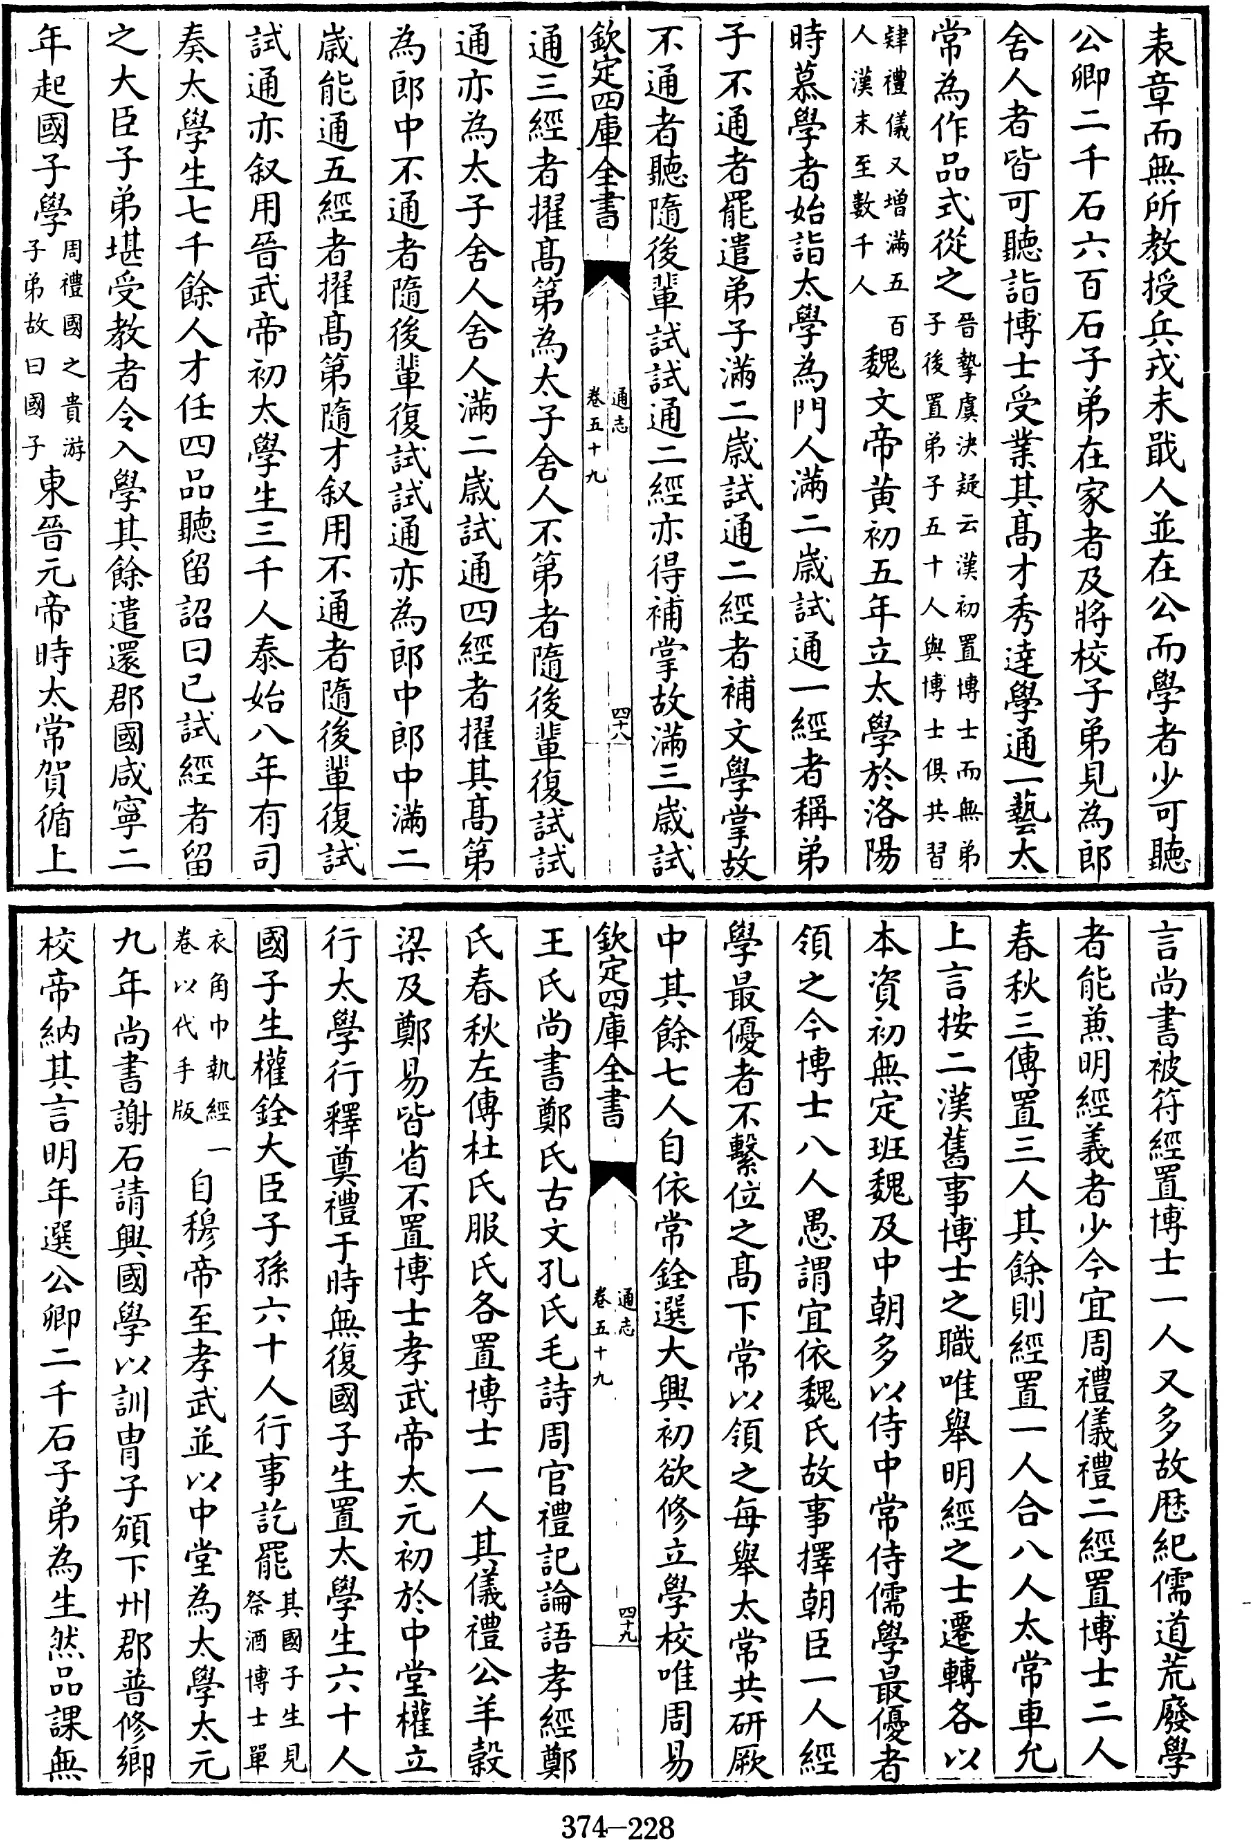 表章而無所教授兵戎未戢人並在公而學者少可聽
公卿二千石六百石子弟在家者及將校子弟見為郎
舍人者皆可聽詣博士受業其髙才秀逹學通一藝太
常為作品式從之晉摯虞決疑云漢初置博士而無弟
子後置弟子五十人與博士俱共習
肄禮儀又增滿五百
人漢末至數千人魏文帝黄初五年立太學於洛陽
時慕學者始詣太學為門人滿二歲試通一經者稱弟
子不通者罷遣弟子滿二歲試通二經者補文學掌故
不通者聽隨後輩試試通二經亦得補掌故滿三歲試
欽定四庫全書
通志
卷五十九
四十八
通三經者擢髙第為太子舍人不第者隨後輩復試試
通亦為太子舍人舍人滿二歲試通四經者擢其髙第
為郎中不通者隨後輩復試試通亦為郎中郎中滿二
歲能通五經者擢髙第隨才叙用不通者隨後輩復試
試通亦叙用晉武帝初太學生三千人泰始八年有司
奏太學生七千餘人才任四品聽留詔曰已試經者留
之大臣子弟堪受教者令入學其餘遣還郡國咸寧二
年起國子學周禮國之貴游
子弟故曰國子東晉元帝時太常賀循上
言尚書被符經置博士一人又多故歴紀儒道荒廢學
者能兼明經義者少今宜周禮儀禮二經置博士二人
春秋三傳置三人其餘則經置一人合八人太常車允
上言按二漢舊事博士之職唯舉明經之士遷轉各以
本資初無定班魏及中朝多以侍中常侍儒學最優者
領之今博士八人愚謂宜依魏氏故事擇朝臣一人經
學最優者不繫位之髙下常以領之每舉太常共研厥
中其餘七人自依常銓選大興初欲修立學校唯周易
欽定四庫全書
通志
卷五十九
四十九
王氏尚書鄭氏古文孔氏毛詩周官禮記論語孝經鄭
氏春秋左傳杜氏服氏各置博士一人其儀禮公羊穀
梁及鄭易皆省不置博士孝武帝太元初於中堂權立
行太學行釋奠禮于時無復國子生置太學生六十人
國子生權銓大臣子孫六十人行事訖罷其國子生見
祭酒博士單
衣角巾執經一
卷以代手版自穆帝至孝武並以中堂為太學太元
九年尚書謝石請興國學以訓胄子頒下州郡普修鄉
校帝納其言明年選公卿二千石子弟為生然品課無
374-228